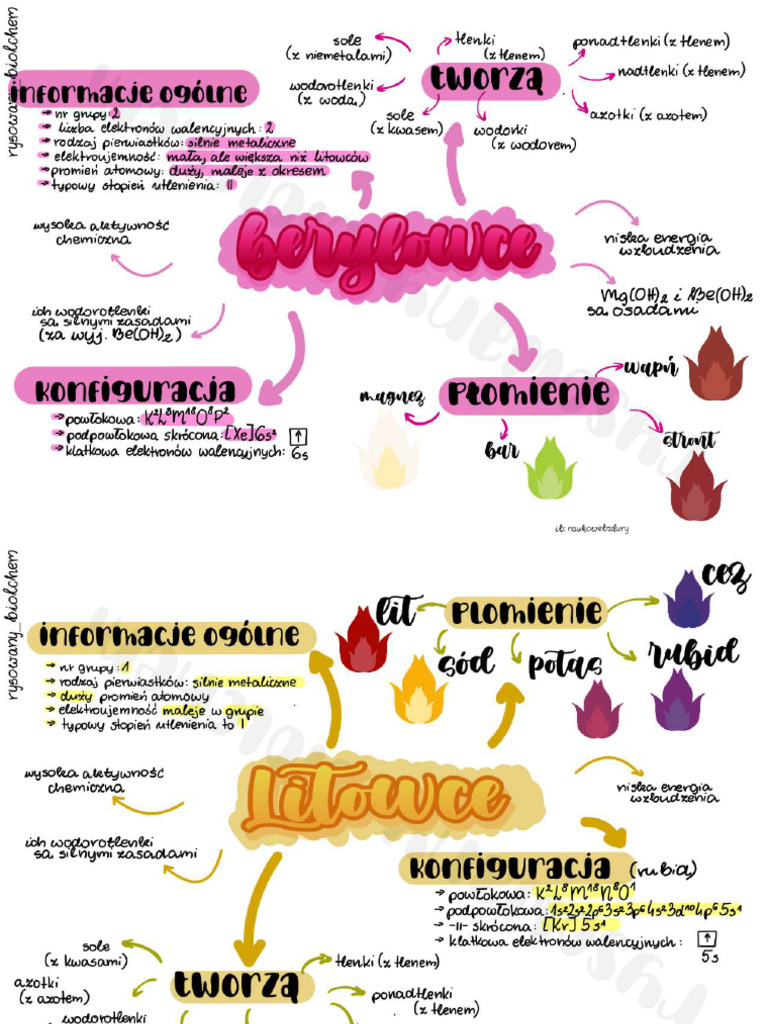 rysowany_biolchem
informacje ogólne
→ nr grupy: 2
→ liczba elektronów walencyjnych: 2
→ rodzaj pierwiastków: silnie metaliczne
→ elektroujemność: mała, ale większa niż litowców
→ promień atomowy: duży, maleje z okresem
→ typowy stopień utlenienia: II
sole
(z niemetalami)
tlenki
(z tlenem)
ponadtlenki (z tlenem)
wodorotlenki
(z wodą)
tworzą
nadtlenki (z tlenem)
sole
(z kwasem)
wodorki
(z wodorem)
azotki (z azotem)
wysoka aktywność
chemiczna
berylowce
niska energia
wzbudzenia
ich wodorotlenki
są silnymi zasadami
(za wyj. Be(OH)₂)
Mg(OH)₂ i Be(OH)₂
są osadami
konfiguracja
→ powłokowa: K²L⁸M¹⁸O⁸P²
→ podpowłokowa skrócona: [Xe]6s²
→ klatkowa elektronów walencyjnych: ↑
6s
płomienie
wapń
magnez
bar
stront
ib: naukowebzdury
rysowany_biolchem
informacje ogólne
→ nr grupy: 1
→ rodzaj pierwiastków: silnie metaliczne
→ duży promień atomowy
→ elektroujemność maleje w grupie
→ typowy stopień utlenienia to I
płomienie
lit
sód
potas
rubid
cez
wysoka aktywność
chemiczna
Litowce
niska energia
wzbudzenia
ich wodorotlenki
są silnymi zasadami
konfiguracja (rubid)
→ powłokowa: K²L⁸M¹⁸N⁸O¹
→ podpowłokowa: 1s²2s²2p⁶3s²3p⁶4s²3d¹⁰4p⁶5s¹
→ -||- skrócona: [Kr]5s¹
→ klatkowa elektronów walencyjnych: ↑
5s
sole
(z kwasami)
azotki
(z azotem)
wodorotlenki
tworzą
tlenki (z tlenem)
ponadtlenki
(z tlenem)